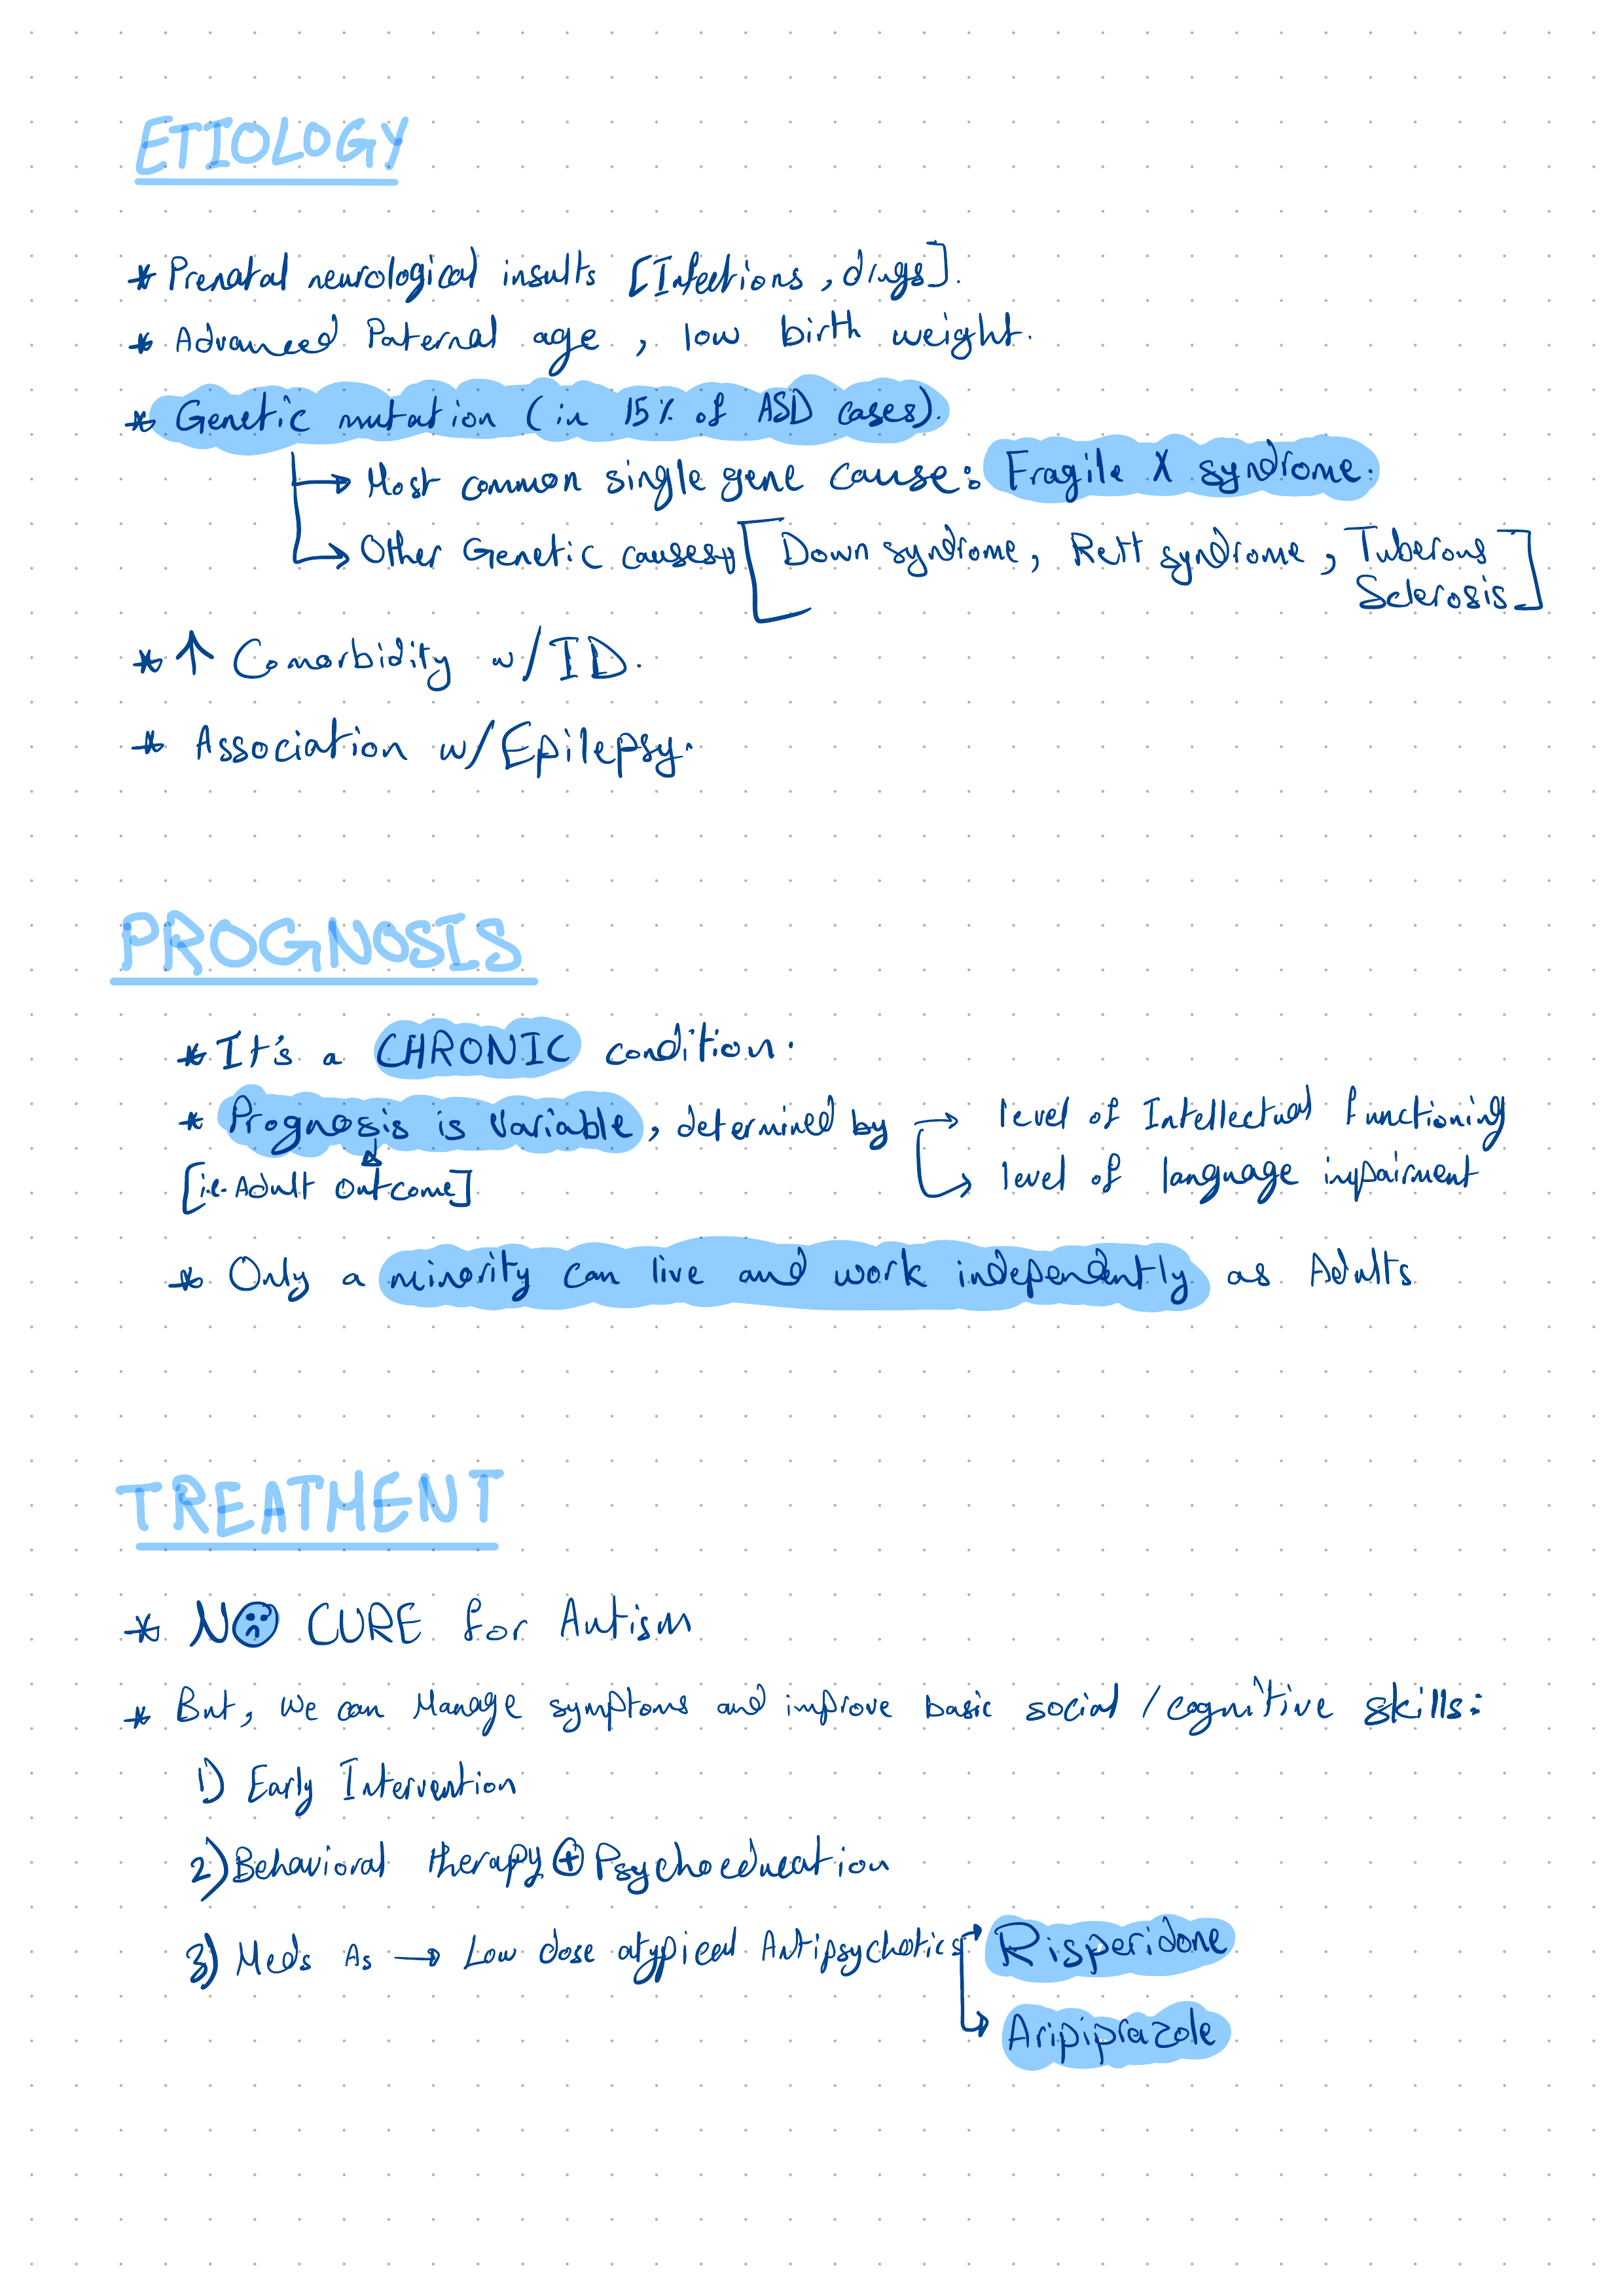 ETIOLOGY
* Prenatal neurological insults [Infections, drugs].
* Advanced Paternal age, low birth weight.
* Genetic mutation (in 15% of ASD cases).
→ Most common single gene cause: Fragile X syndrome.
→ Other Genetic causes [Down syndrome, Rett syndrome, Tuberous
Sclerosis]
* ↑ Comorbidity w/ID.
* Association w/Epilepsy.
PROGNOSIS
* It's a CHRONIC condition.
* Prognosis is Variable, determined by → level of Intellectual functioning
[i.e. Adult Outcome] → level of language impairment
* Only a minority can live and work independently as Adults
TREATMENT
* NO CURE for Autism
* But, we can Manage symptoms and improve basic social / cognitive skills:
1) Early Intervention
2) Behavioral therapy ⊕ Psychoeducation
3) Meds As → Low dose atypical Antipsychotics → Risperidone
→ Aripiprazole